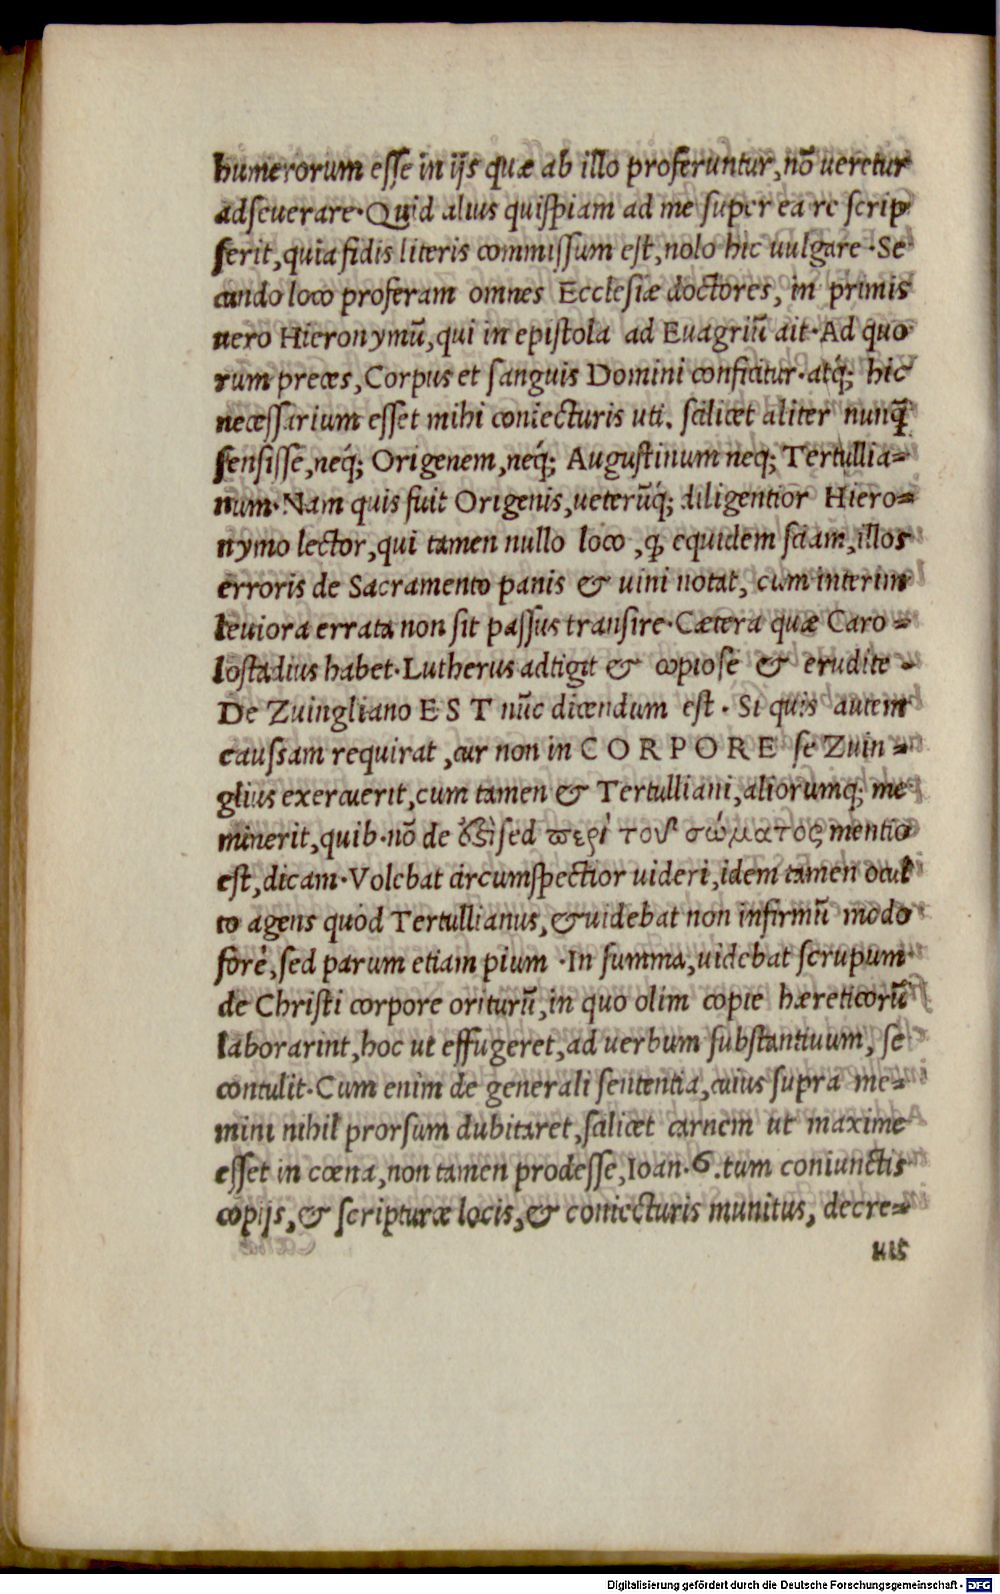 humerorum esse in ijs quæ ab illo proferuntur, nō ueretur
adseuerare. Quid alius quispiam ad me super ea re scrip
serit, quia fidis literis commissum est, nolo hic uulgare. Se
cundo loco proferam omnes Ecclesiæ doctores, in primis
uero Hieronymū, qui in epistola ad Euagriū ait. Ad quo
rum preces, Corpus et sanguis Domini conficitur. atq́; hic
necessarium esset mihi coniecturis uti. scilicet aliter nunq̄
sensisse, neq́; Origenem, neq́; Augustinum neq; Tertullia-
num. Nam quis fuit Origenis, ueterūq́; diligentior Hiero-
nymo lector, qui tamen nullo loco, ꝙ equidem sciam, illos
erroris de Sacramento panis & uini notat, cum interim
leuiora errata non sit passus transire. Cætera quæ Caro-
lostadius habet. Lutherus adtigit & copiose & erudite-
De Zuingliano E S T nūc dicendum est. Si quis autem
caussam requirat, cur non in C O R P O R E se Zuin-
glius exercuerit, cum tamen & Tertulliani, aliorumq; me
minerit, quib. nō de ὅτι sed περὶ τοῦ σώματος mentio
est, dicam. Volebat circumspectior uideri, idem tamen ocul
to agens quod Tertullianus, & uidebat non infirmū modo
forè, sed parum etiam pium. In summa, uidebat scrupum
de Christi corpore oriturū, in quo olim copie hæreticorū
laborarint, hoc ut effugeret, ad uerbum substantiuum, se
contulit. Cum enim de generali sententia, cuius supra me-
mini nihil prorsum dubitaret, scilicet carnem ut maxime
esset in cœna, non tamen prodesse, Ioan. 6. tum coniunctis
copijs, & scripturæ locis, & coniecturis munitus, decre-
uis
Digitalisierung gefördert durch die Deutsche Forschungsgemeinschaft - DFG